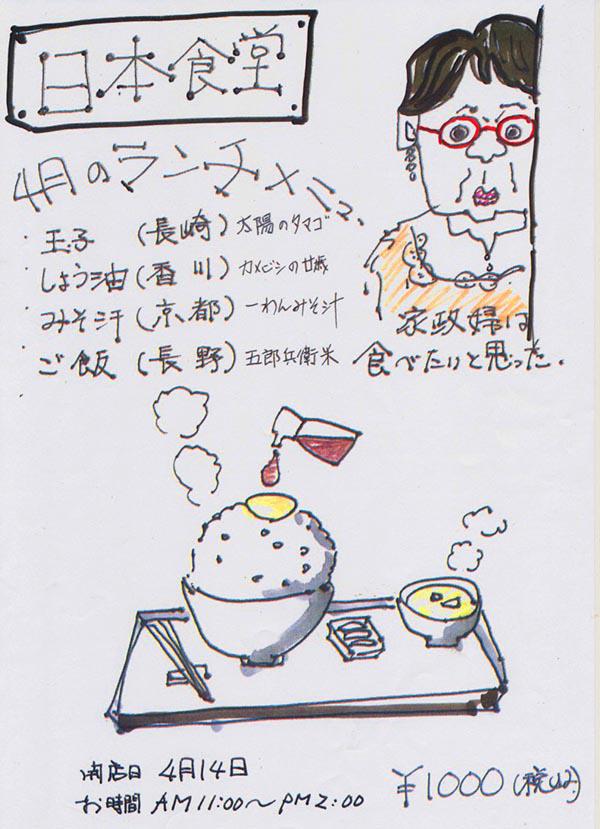 日本食堂
4月のランチメニュー
・玉子 (長崎) 太陽のタマゴ
・しょう油 (香川) カメビシの廿歳
・みそ汁 (京都) 一わんみそ汁
・ご飯 (長野) 五郎兵衛米
家政婦は
食べたいと思った.
開店日 4月14日
お時間 AM11:00〜PM2:00
¥1000 (税込み)